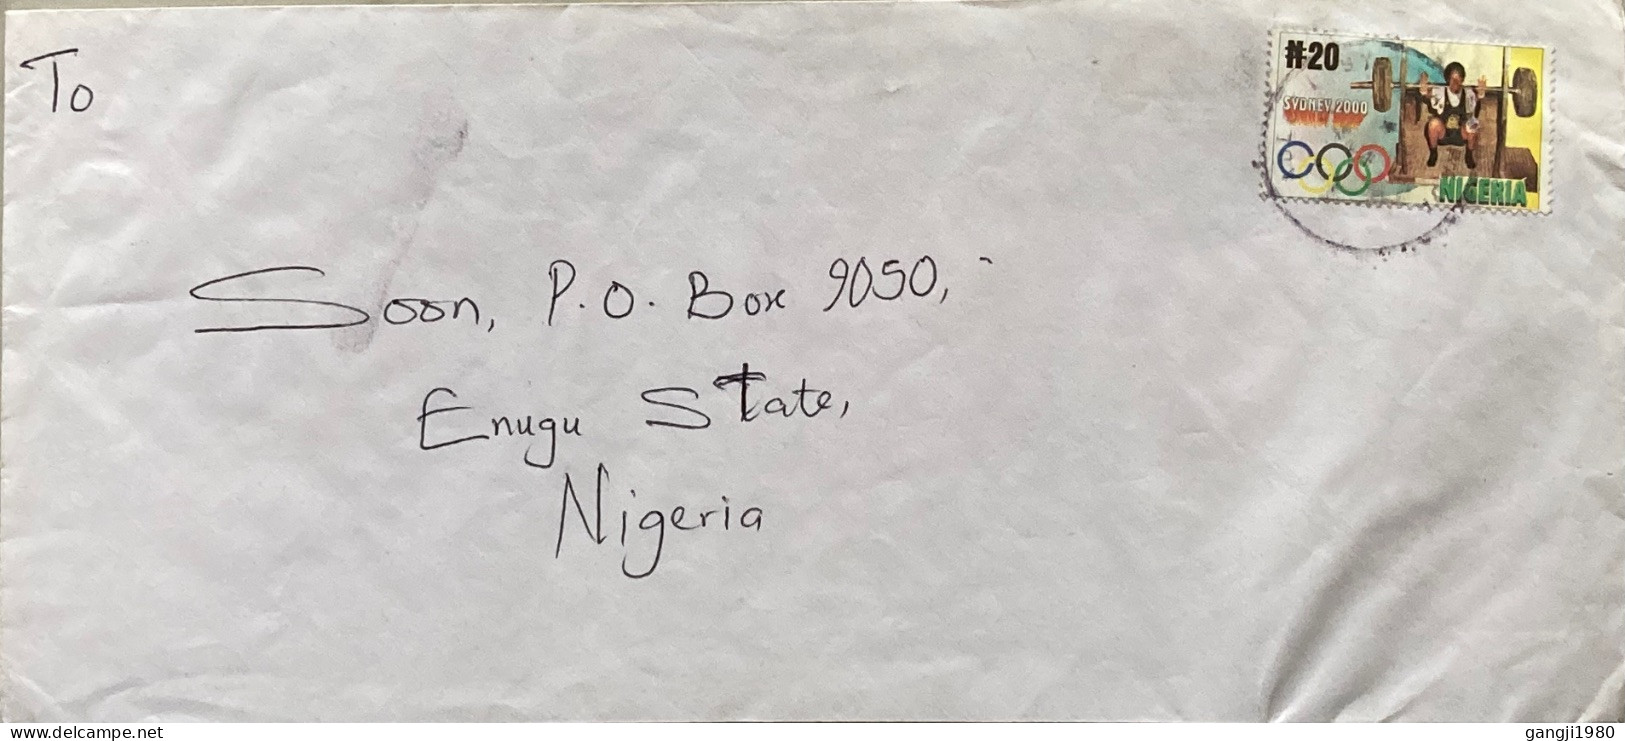 To
₦20
SYDNEY 2000
NIGERIA
Soon, P.O. Box 9050,
Enugu State,
Nigeria
delcampe.net
gangji1980